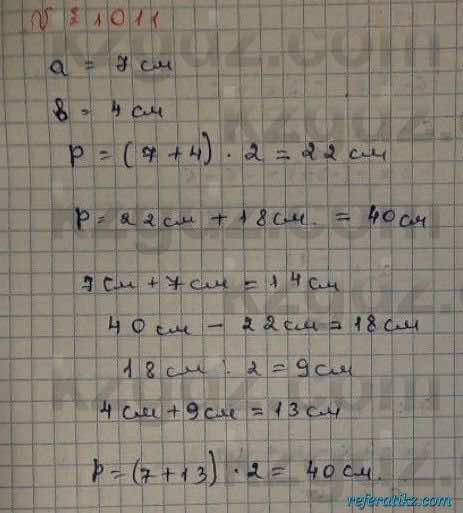 № 1011
a = 7 см
в = 4 см
P = (7 + 4) · 2 = 22 см
P = 22 см + 18 см. = 40 см
7 см + 7 см = 14 см
40 см - 22 см = 18 см
18 см : 2 = 9 см
4 см + 9 см = 13 см
P = (7 + 13) · 2 = 40 см.
referatikz.com